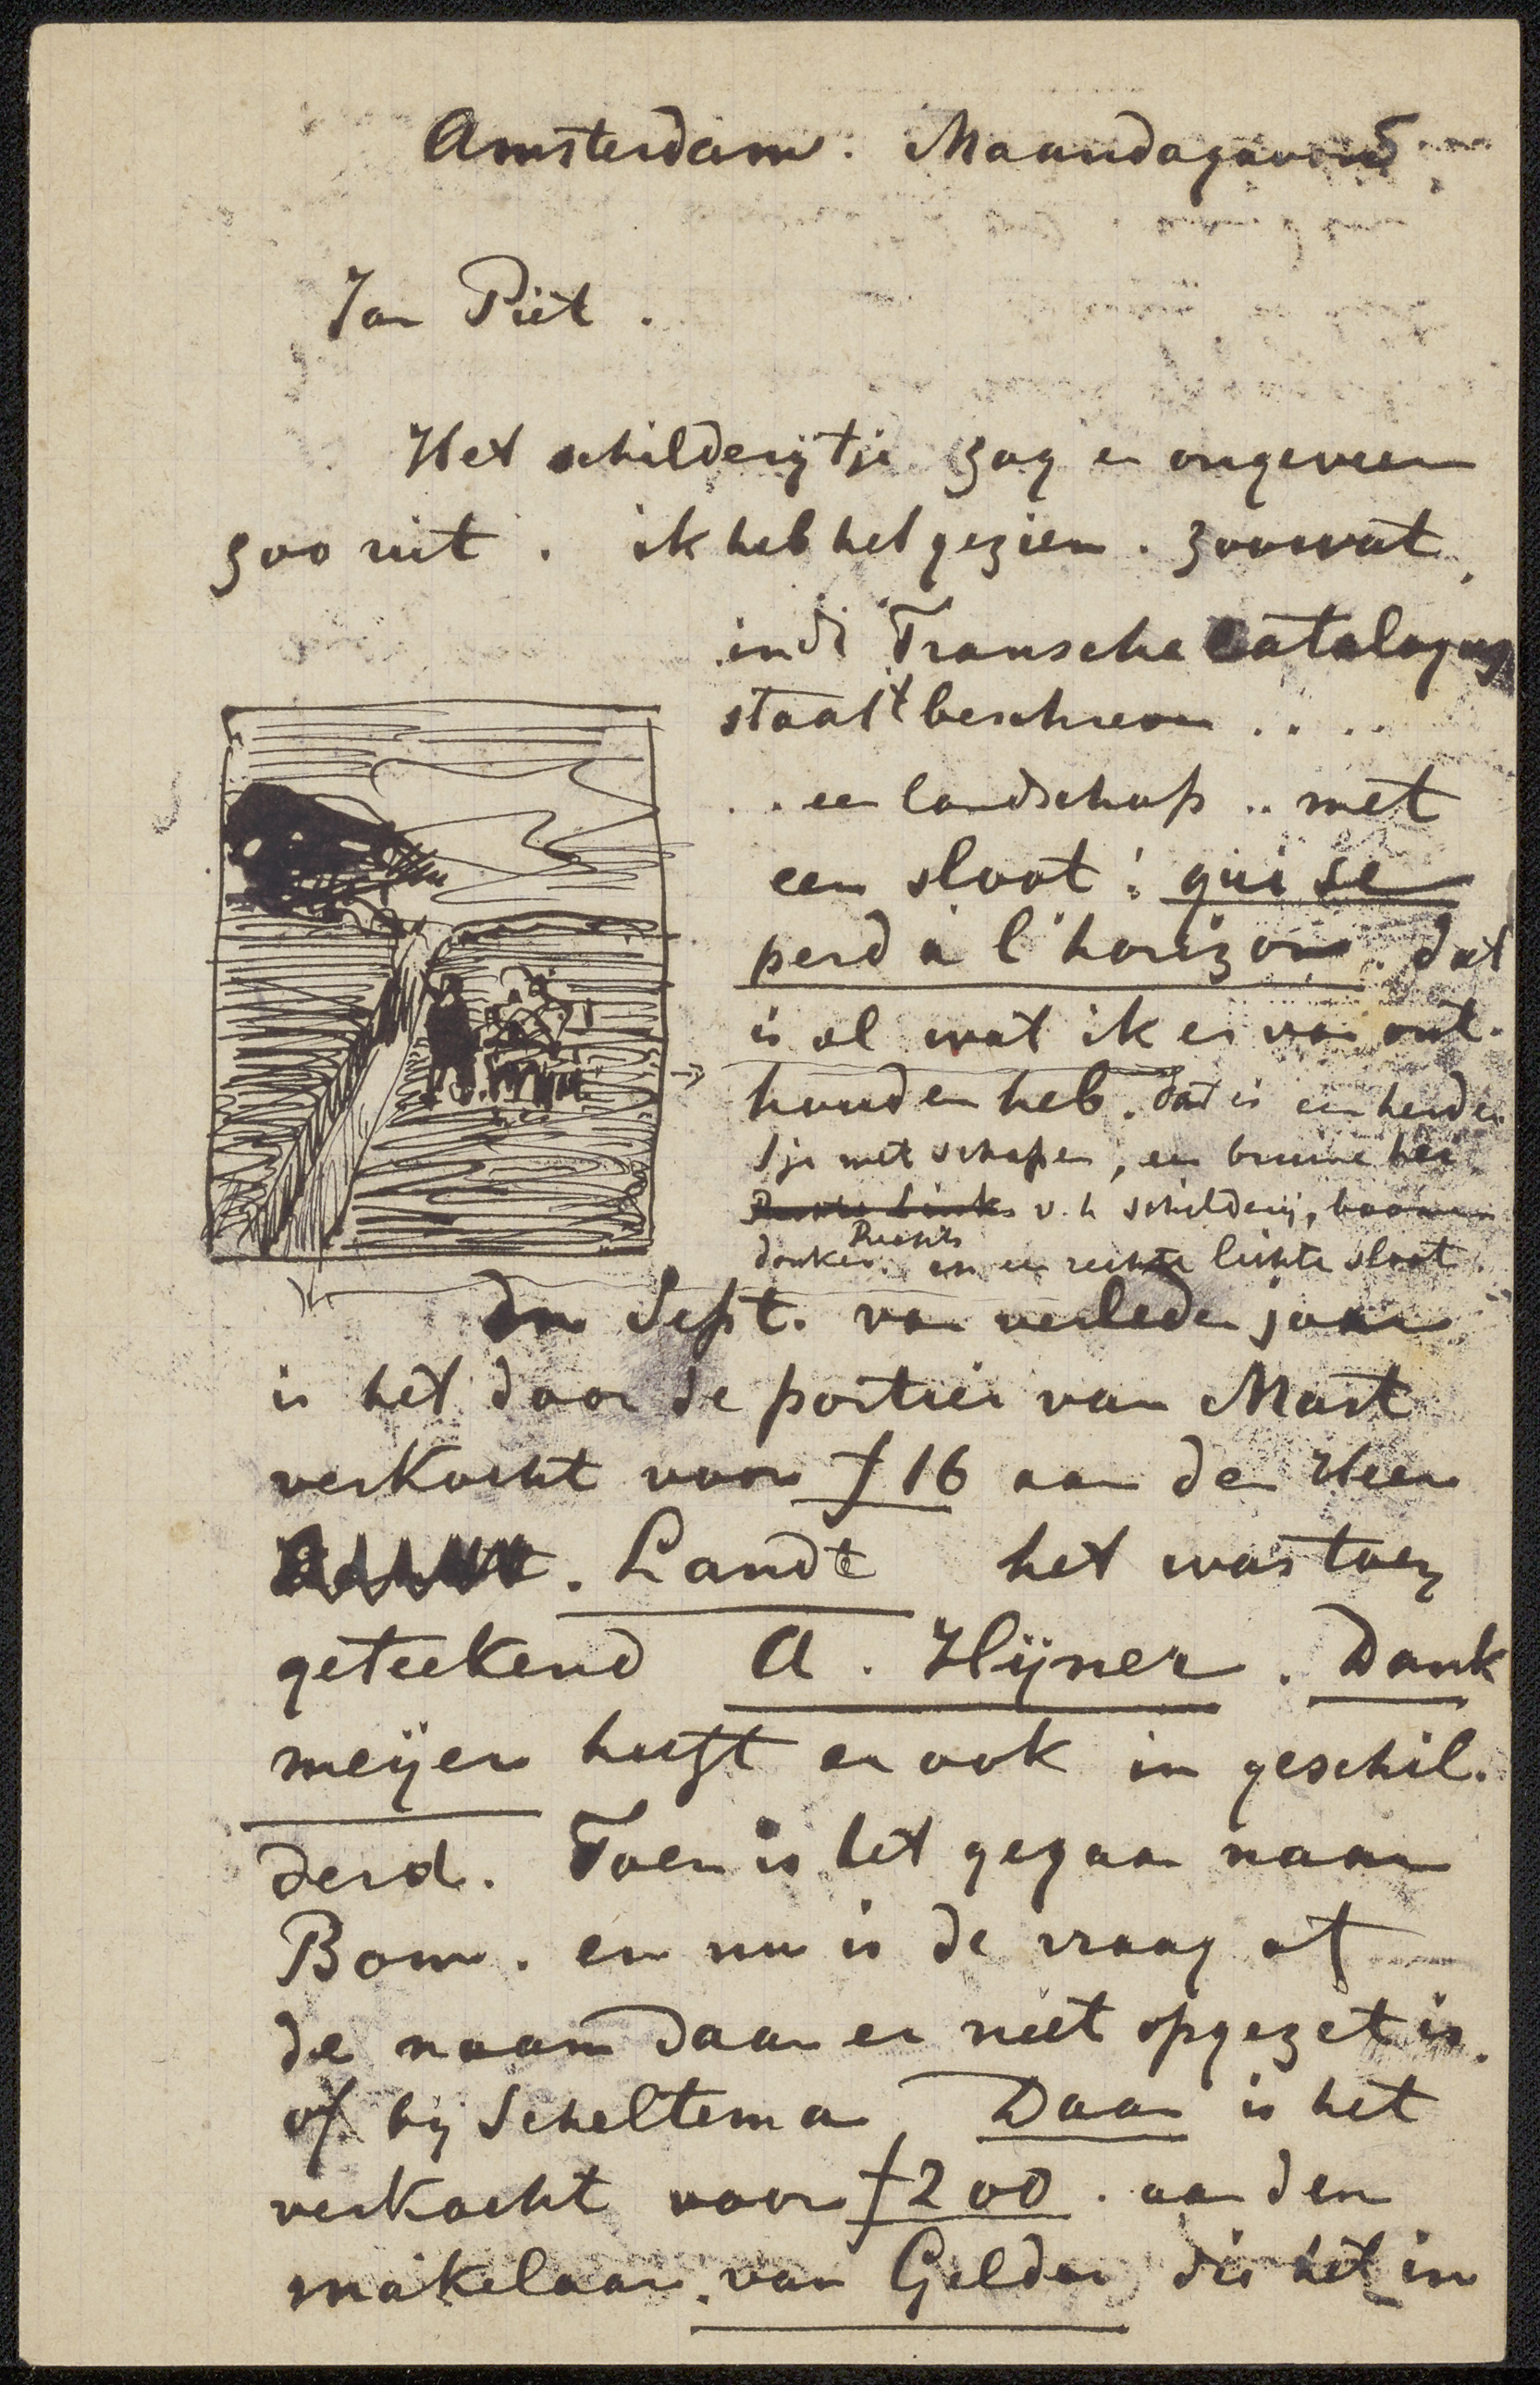 Amsterdam. Maandagavond
Jan Piet.
Het schilderijtje zag er ongeveer
zoo uit. ik heb het gezien. zoowat
in di Fransche Catalogus
staat 't beschreven . . . .
. . een landschap . . met
een sloot: qui se
perd à l'horizon. dat
is al wat ik er van ont-
houden heb. dat is een herder
tje met schapen, een bruine hei
Links v. h schilderij, boomen
Rechts
donker. en een rechte lichte sloot.
In Sept. van verleden jaar
is het door de portier van Mast
verkocht voor f 16 aan den Heer
. Landt het was toen
geteekend A. Hijner. Dank
meijer heeft er ook in geschil-
derd. Toen is het gegaan naar
Bom. en nu is de vraag of
de naam daar er niet opgezet is.
of bij Scheltema, Daar is het
verkocht voor f 200. aan den
makelaar. van Gelder die het in